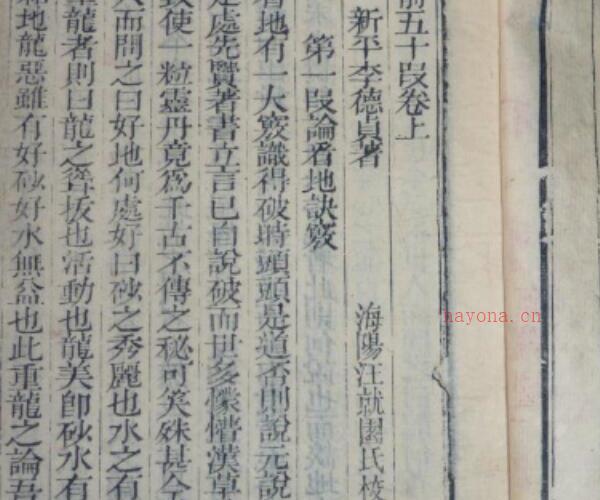 前五十段卷上
新平李德貞著 海陽汪就園氏校
第一段論看地訣竅
看地有一大竅識得破時頭頭是道否則說元說
處先賢著書立言已自說破而世多懞懵漢草
致使一粒靈丹竟為千古不傳之秘可笑殊甚今
人而問之曰好地何處好曰砂之秀麗也水之有
龍者則曰龍之聳拔也活動也龍美即砂水有
地龍惡雖有好砂好水無益也此重龍之論吾
hayona.cn